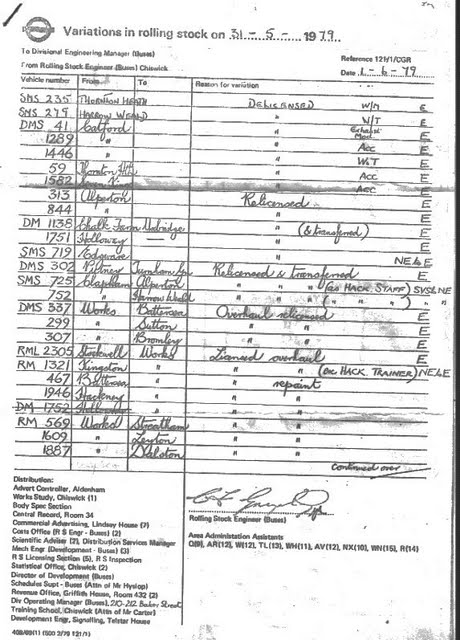 Variations in rolling stock on 31-5-1979
To Divisional Engineering Manager (Buses)
Reference 121/1/CGR
From Rolling Stock Engineer (Buses) Chiswick
Date 1-6-79
Vehicle number From To Reason for variation
SMS 235 THORNTON HEATH DELICENSED W/M E
SMS 279 HARROW WEALD " W/T E
DMS 41 Catford " Exhaust Mod. E
1289 " " Acc E
1446 " " W/T E
59 Thornton Hth " Acc E
1582 Seven Kings " Acc E
313 Alperton Relicensed E
844 " " E
DM 1138 Chalk Farm Uxbridge " (& transferred) E
1751 Holloway — " E
SMS 719 Edgware " NE&E
DMS 302 Putney Turnham Gn Relicensed & transferred E
SMS 725 Clapham Alperton " " " (EX HACK. STAFF) SVSLNE
752 " Harrow Weald " " " ( " " ) " "
DMS 337 Works Battersea Overhaul relicensed E
299 " Sutton " " E
307 " Bromley " " E
RML 2305 Stockwell Works Licensed overhaul E
RM 1321 Kingston " " " (EX HACK. TRAINER) NE&E
467 Battersea " " repaint E
1946 Hackney " " " E
DM 1752 Holloway " " " E
RM 569 Works Streatham " " E
1609 " Leyton " " E
1887 " Dalston " " E
continued over
Distribution:
Advert Controller, Aldenham
Works Study, Chiswick (1)
Body Spec Section
Central Record, Room 34
Commercial Advertising, Lindsey House (7)
Costs Office (R S Engr - Buses) (2)
Scientific Adviser (2), Distribution Services Manager
Mech Engr (Development - Buses) (3)
R S Licensing Section (5), R S Inspection
Statistical Office, Chiswick (2)
Director of Development (Buses)
Schedules Supt - Buses (Attn of Mr Hyslop)
Revenue Office, Griffith House, Room 432 (2)
Div Operating Manager (Buses), 210-212 Baker Street
Training School, Chiswick (Attn of Mr Carter)
Development Engr, Signalling, Telstar House
Rolling Stock Engineer (Buses)
Area Administation Assistants
Q(9), AR(12), W(12), TL(13), WH(11), AV(12), NX(10), WN(15), R(14)
408/89(1) (500 2/79 121/1)